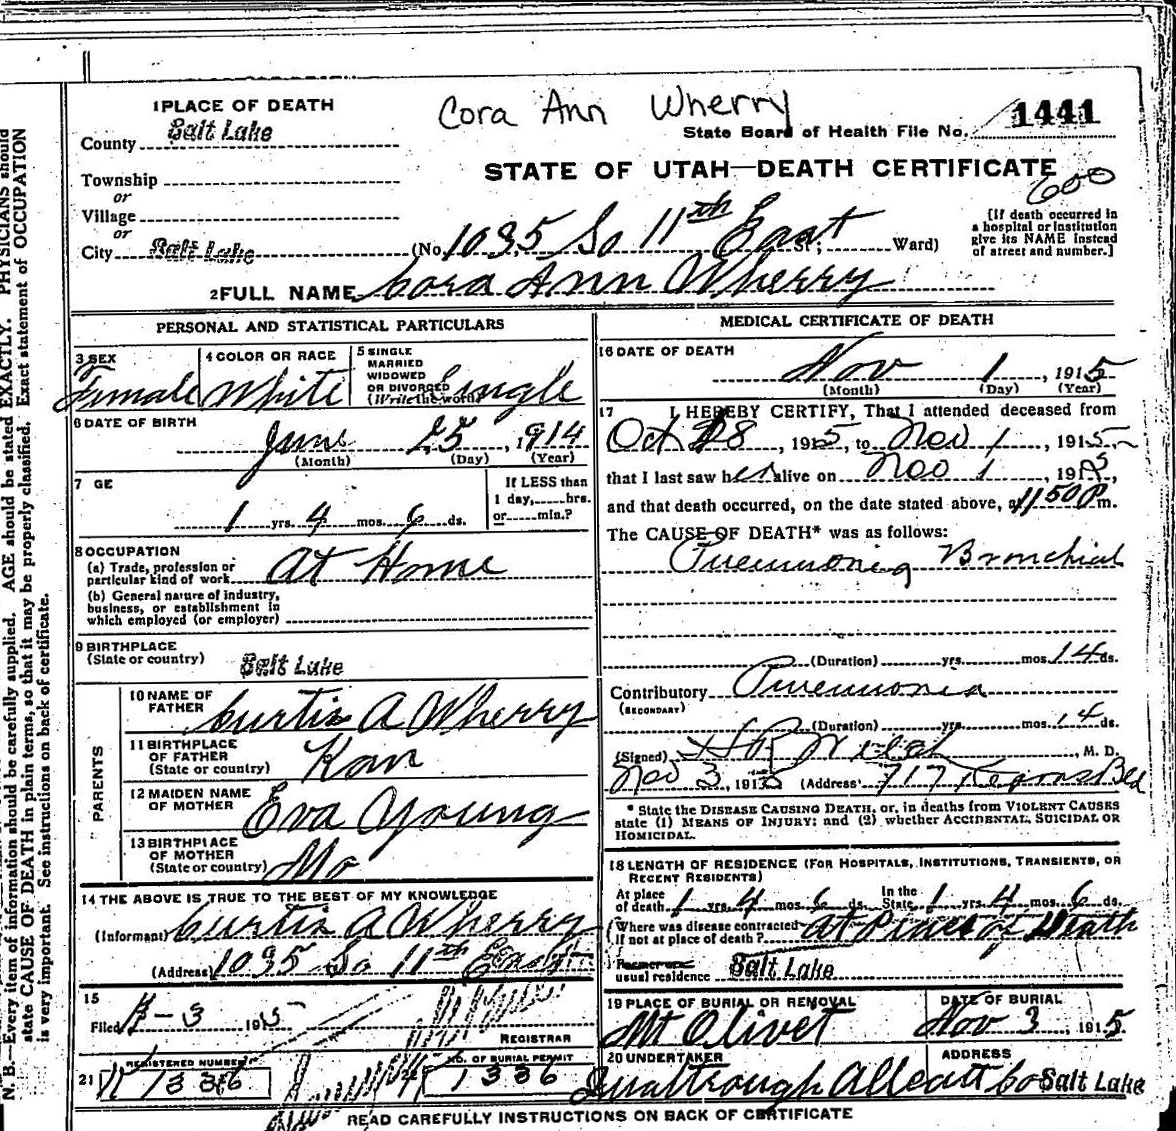 Cora Ann Wherry
1 PLACE OF DEATH
County Salt Lake
State Board of Health File No. 1441
STATE OF UTAH—DEATH CERTIFICATE
600
Township
or
Village
or
City Salt Lake (No. 1035 So 11th East; Ward)
[If death occurred in
a hospital or institution
give its NAME instead
of street and number.]
2 FULL NAME Cora Ann Wherry
PERSONAL AND STATISTICAL PARTICULARS
3 SEX
Female
4 COLOR OR RACE
White
5 SINGLE
MARRIED
WIDOWED
OR DIVORCED
(Write the word) Single
6 DATE OF BIRTH
June 25, 1914
(Month) (Day) (Year)
7 GE
1 yrs. 4 mos. 6 ds.
If LESS than
1 day, hrs.
or min.?
8 OCCUPATION
(a) Trade, profession or
particular kind of work At Home
(b) General nature of industry,
business, or establishment in
which employed (or employer)
9 BIRTHPLACE
(State or country) Salt Lake
PARENTS
10 NAME OF
FATHER Curtis A Wherry
11 BIRTHPLACE
OF FATHER
(State or country) Kan
12 MAIDEN NAME
OF MOTHER Eva Young
13 BIRTHPLACE
OF MOTHER
(State or country) Mo
14 THE ABOVE IS TRUE TO THE BEST OF MY KNOWLEDGE
(Informant) Curtis A Wherry
(Address) 1035 So 11th East
15
Filed 11-3 1915
REGISTRAR
21 REGISTERED NUMBER
1336
22 NO. OF BURIAL PERMIT
1336
MEDICAL CERTIFICATE OF DEATH
16 DATE OF DEATH
Nov 1, 1915
(Month) (Day) (Year)
17 I HEREBY CERTIFY, That I attended deceased from
Oct 28, 1915, to Nov 1, 1915
that I last saw her alive on Nov 1 1915,
and that death occurred, on the date stated above, at 11 50 P m.
The CAUSE OF DEATH* was as follows:
Pneumonia Bronchial
(Duration) yrs. mos. 14 ds.
Contributory Pneumonia
(SECONDARY)
(Duration) yrs. mos. 14 ds.
(Signed) , M. D.
Nov 3, 1915 (Address) 717 Kearns Bld
* State the DISEASE CAUSING DEATH, or, in deaths from VIOLENT CAUSES
state (1) MEANS OF INJURY; and (2) whether ACCIDENTAL, SUICIDAL OR
HOMICIDAL.
18 LENGTH OF RESIDENCE (FOR HOSPITALS, INSTITUTIONS, TRANSIENTS, OR
RECENT RESIDENTS)
At place
of death 1 yrs. 4 mos. 6 ds. In the
State 1 yrs. 4 mos. 6 ds.
Where was disease contracted
if not at place of death? At Place of Death
Former or
usual residence Salt Lake
19 PLACE OF BURIAL OR REMOVAL
Mt Olivet
DATE OF BURIAL
Nov 3, 1915
20 UNDERTAKER
Co
ADDRESS
Salt Lake
READ CAREFULLY INSTRUCTIONS ON BACK OF CERTIFICATE
N. B.—Every item of information should be carefully supplied. AGE should be stated EXACTLY. PHYSICIANS should
state CAUSE OF DEATH in plain terms, so that it may be properly classified. Exact statement of OCCUPATION
is very important. See instructions on back of certificate.